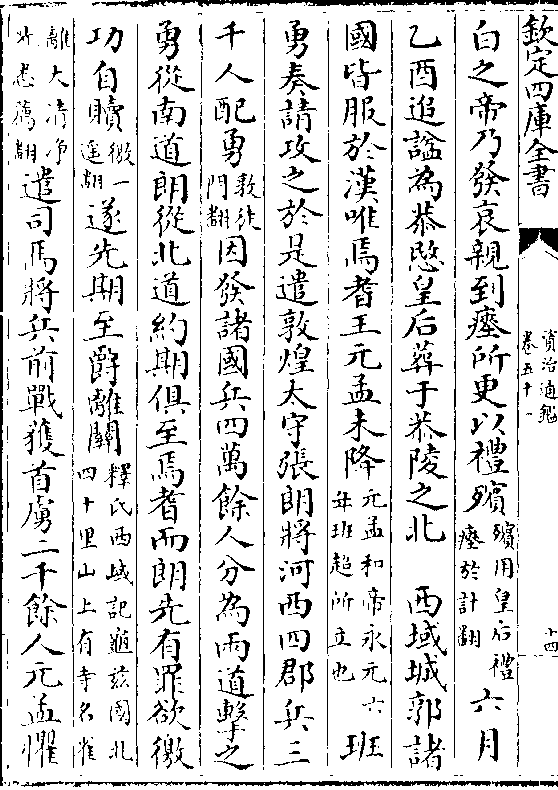 欽定四庫全書
資治通鑑
卷五十一
十四
白之帝乃發哀親到瘞所更以禮殯殯用皇后禮瘞於計翻六月
乙酉追諡為恭愍皇后葬于恭陵之北　西域城郭諸
國皆服於漢唯焉耆王元孟未降元孟和帝永元六年班超所立也班
勇奏請攻之於是遣敦煌太守張朗將河西四郡兵三
千人配勇敦徒門翻因發諸國兵四萬餘人分為兩道擊之
勇從南道朗從北道約期俱至焉耆而朗先有罪欲徼
功自贖徼一遥翻遂先期至爵離關釋氏西域記龜兹國北四十里山上有寺名雀離大清浄先悉薦翻遣司馬將兵前戰獲首虜二千餘人元孟懼